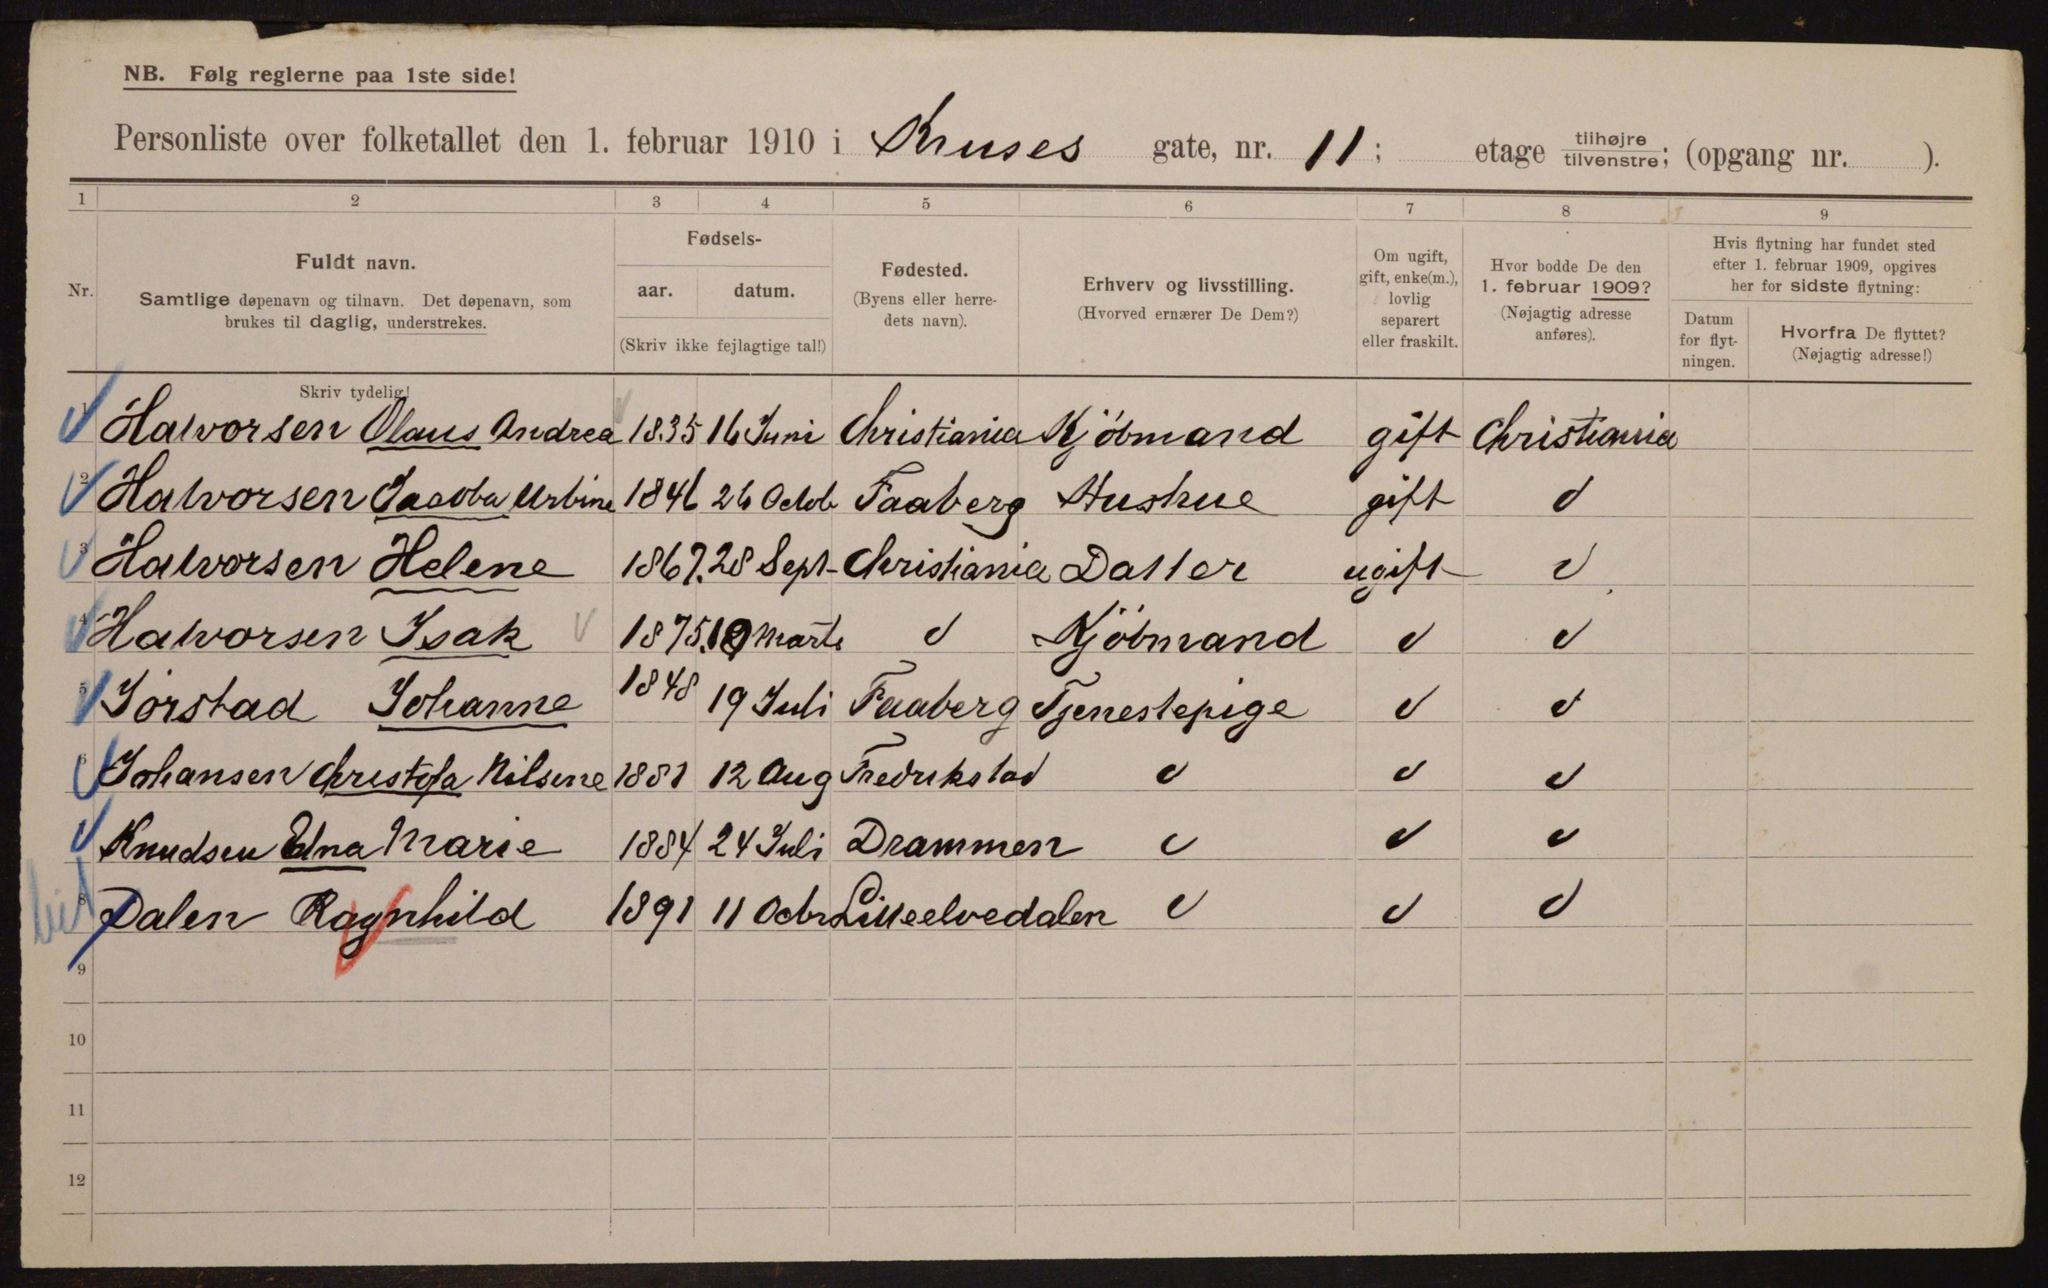 NB. Følg reglerne paa 1ste side!
Personliste over folketallet den 1. februar 1910 i Kruses gate, nr. 11; etage tilhøjre tilvenstre; (opgang nr. ).
1 2 3 4 5 6 7 8 9
Nr.
Fuldt navn.
Samtlige døpenavn og tilnavn. Det døpenavn, som
brukes til daglig, understrekes.
Fødsels-
aar. datum.
(Skriv ikke fejlagtige tal!)
Fødested.
(Byens eller herre-
dets navn).
Erhverv og livsstilling.
(Hvorved ernærer De Dem?)
Om ugift,
gift, enke(m.),
lovlig
separert
eller fraskilt.
Hvor bodde De den
1. februar 1909?
(Nøjagtig adresse
anføres).
Hvis flytning har fundet sted
efter 1. februar 1909, opgives
her for sidste flytning:
Datum
for flyt-
ningen.
Hvorfra De flyttet?
(Nøjagtig adresse!)
Skriv tydelig!
1 Halvorsen Olaus Andrea 1835 16 Juni Christiania Kjöbmand gift Christiania
2 Halvorsen Jacoba Urbine 1846 26 Octob Faaberg Hushue gift
3 Halvorsen Helene 1867. 28 Sept Christiania Datter ugift
4 Halvorsen Isak 1875. Marts Kjöbmand
5 Jörstad Johanne 1848 19 Juli Faaberg Tjenestepige
6 Johansen Christofa Nilsine 1881 12 Aug Fredrikstad
Knudsen Edna Marie 1884 24 Juli Drammen
8 Dalen Ragnhild 1891 11 Octr Lilleelvedalen
9
10
11
12